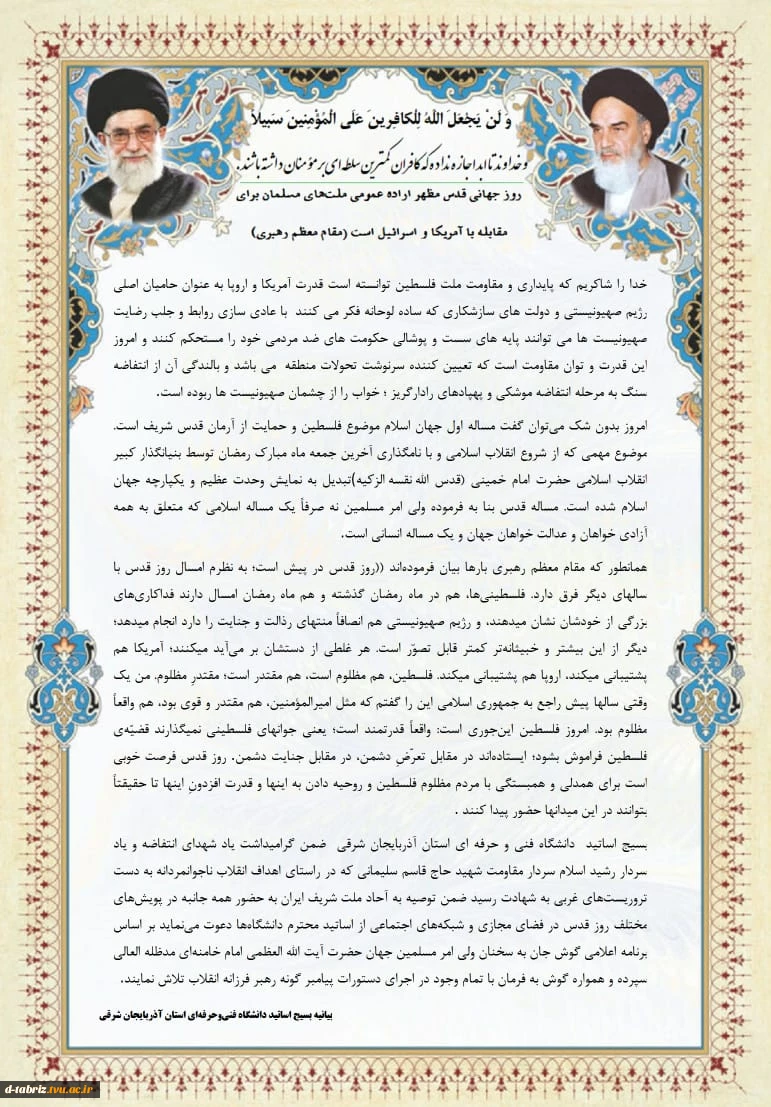 وَ لَنْ يَجْعَلَ اللهُ لِلْكافِرينَ عَلَى الْمُؤْمِنِينَ سَبيلاً
و خداوند تا ابد اجازه نداده که کافران کمترین سلطه ای بر مؤمنان داشته باشند.
روز جهانی قدس مظهر اراده عمومی ملت‌های مسلمان برای
مقابله با آمریکا و اسرائیل است (مقام معظم رهبری)
خدا را شاکریم که پایداری و مقاومت ملت فلسطین توانسته است قدرت آمریکا و اروپا به عنوان حامیان اصلی
رژیم صهیونیستی و دولت های سازشکاری که ساده لوحانه فکر می کنند با عادی سازی روابط و جلب رضایت
صهیونیست ها می توانند پایه های سست و پوشالی حکومت های ضد مردمی خود را مستحکم کنند و امروز
این قدرت و توان مقاومت است که تعیین کننده سرنوشت تحولات منطقه می باشد و بالندگی آن از انتفاضه
سنگ به مرحله انتفاضه موشکی و پهپادهای رادارگریز ؛ خواب را از چشمان صهیونیست ها ربوده است.
امروز بدون شک می‌توان گفت مساله اول جهان اسلام موضوع فلسطین و حمایت از آرمان قدس شریف است.
موضوع مهمی که از شروع انقلاب اسلامی و با نامگذاری آخرین جمعه ماه مبارک رمضان توسط بنیانگذار کبیر
انقلاب اسلامی حضرت امام خمینی (قدس الله نقسه الزکیه)تبدیل به نمایش وحدت عظیم و یکپارچه جهان
اسلام شده است. مساله قدس بنا به فرموده ولی امر مسلمین نه صرفاً یک مساله اسلامی که متعلق به همه
آزادی خواهان و عدالت خواهان جهان و یک مساله انسانی است.
همانطور که مقام معظم رهبری بارها بیان فرموده‌اند ((روز قدس در پیش است؛ به نظرم امسال روز قدس با
سالهای دیگر فرق دارد. فلسطینی‌ها، هم در ماه رمضان گذشته و هم ماه رمضان امسال دارند فداکاری‌های
بزرگی از خودشان نشان میدهند، و رژیم صهیونیستی هم انصافاً منتهای رذالت و جنایت را دارد انجام میدهد؛
دیگر از این بیشتر و خبیثانه‌تر کمتر قابل تصوّر است. هر غلطی از دستشان بر می‌آید میکنند؛ آمریکا هم
پشتیبانی میکند، اروپا هم پشتیبانی میکند. فلسطین، هم مظلوم است، هم مقتدر است؛ مقتدرِ مظلوم. من یک
وقتی سالها پیش راجع به جمهوری اسلامی این را گفتم که مثل امیرالمؤمنین، هم مقتدر و قوی بود، هم واقعاً
مظلوم بود. امروز فلسطین این‌جوری است: واقعاً قدرتمند است؛ یعنی جوانهای فلسطینی نمیگذارند قضیّه‌ی
فلسطین فراموش بشود؛ ایستاده‌اند در مقابل تعرّضِ دشمن، در مقابل جنایت دشمن. روز قدس فرصت خوبی
است برای همدلی و همبستگی با مردم مظلوم فلسطین و روحیه دادن به اینها و قدرت افزودنِ اینها تا حقیقتاً
بتوانند در این میدانها حضور پیدا کنند .
بسیج اساتید دانشگاه فنی و حرفه ای استان آذربایجان شرقی ضمن گرامیداشت یاد شهدای انتفاضه و یاد
سردار رشید اسلام سردار مقاومت شهید حاج قاسم سلیمانی که در راستای اهداف انقلاب ناجوانمردانه به دست
تروریست‌های غربی به شهادت رسید ضمن توصیه به آحاد ملت شریف ایران به حضور همه جانبه در پویش‌های
مختلف روز قدس در فضای مجازی و شبکه‌های اجتماعی از اساتید محترم دانشگاه‌ها دعوت می‌نماید بر اساس
برنامه اعلامی گوش جان به سخنان ولی امر مسلمین جهان حضرت آیت الله العظمی امام خامنه‌ای مدظله العالی
سپرده و همواره گوش به فرمان با تمام وجود در اجرای دستورات پیامبر گونه رهبر فرزانه انقلاب تلاش نمایند.
بیانیه بسیج اساتید دانشگاه فنی‌وحرفه‌ای استان آذربایجان شرقی
d-tabriz.tvu.ac.ir